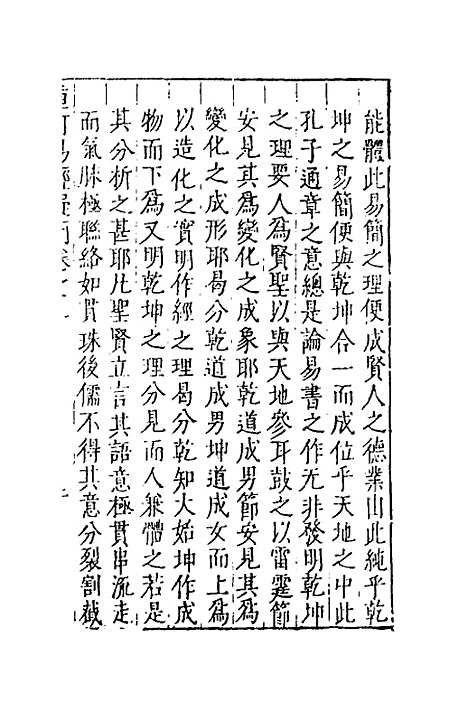 能體此易簡之理便成賢人之德業由此純乎乾
坤之易簡便與乾坤合一而成位乎天地之中此
孔子通章之意總是論易書之作无非發明乾坤
之理要人為賢聖以與天地參耳鼓之以雷霆節
安見其為變化之成象耶乾道成男節安見其為
變化之成形耶曷分乾道成男坤道成女而上為
以造化之實明作經之理曷分乾知大始坤作成
物而下為又明乾坤之理分見而人兼體之若是
其分析之甚耶凡聖賢立言其語意極貫串流走
而氣脉極聯絡如貫珠後儒不得其意分裂割截
易經疑問卷之